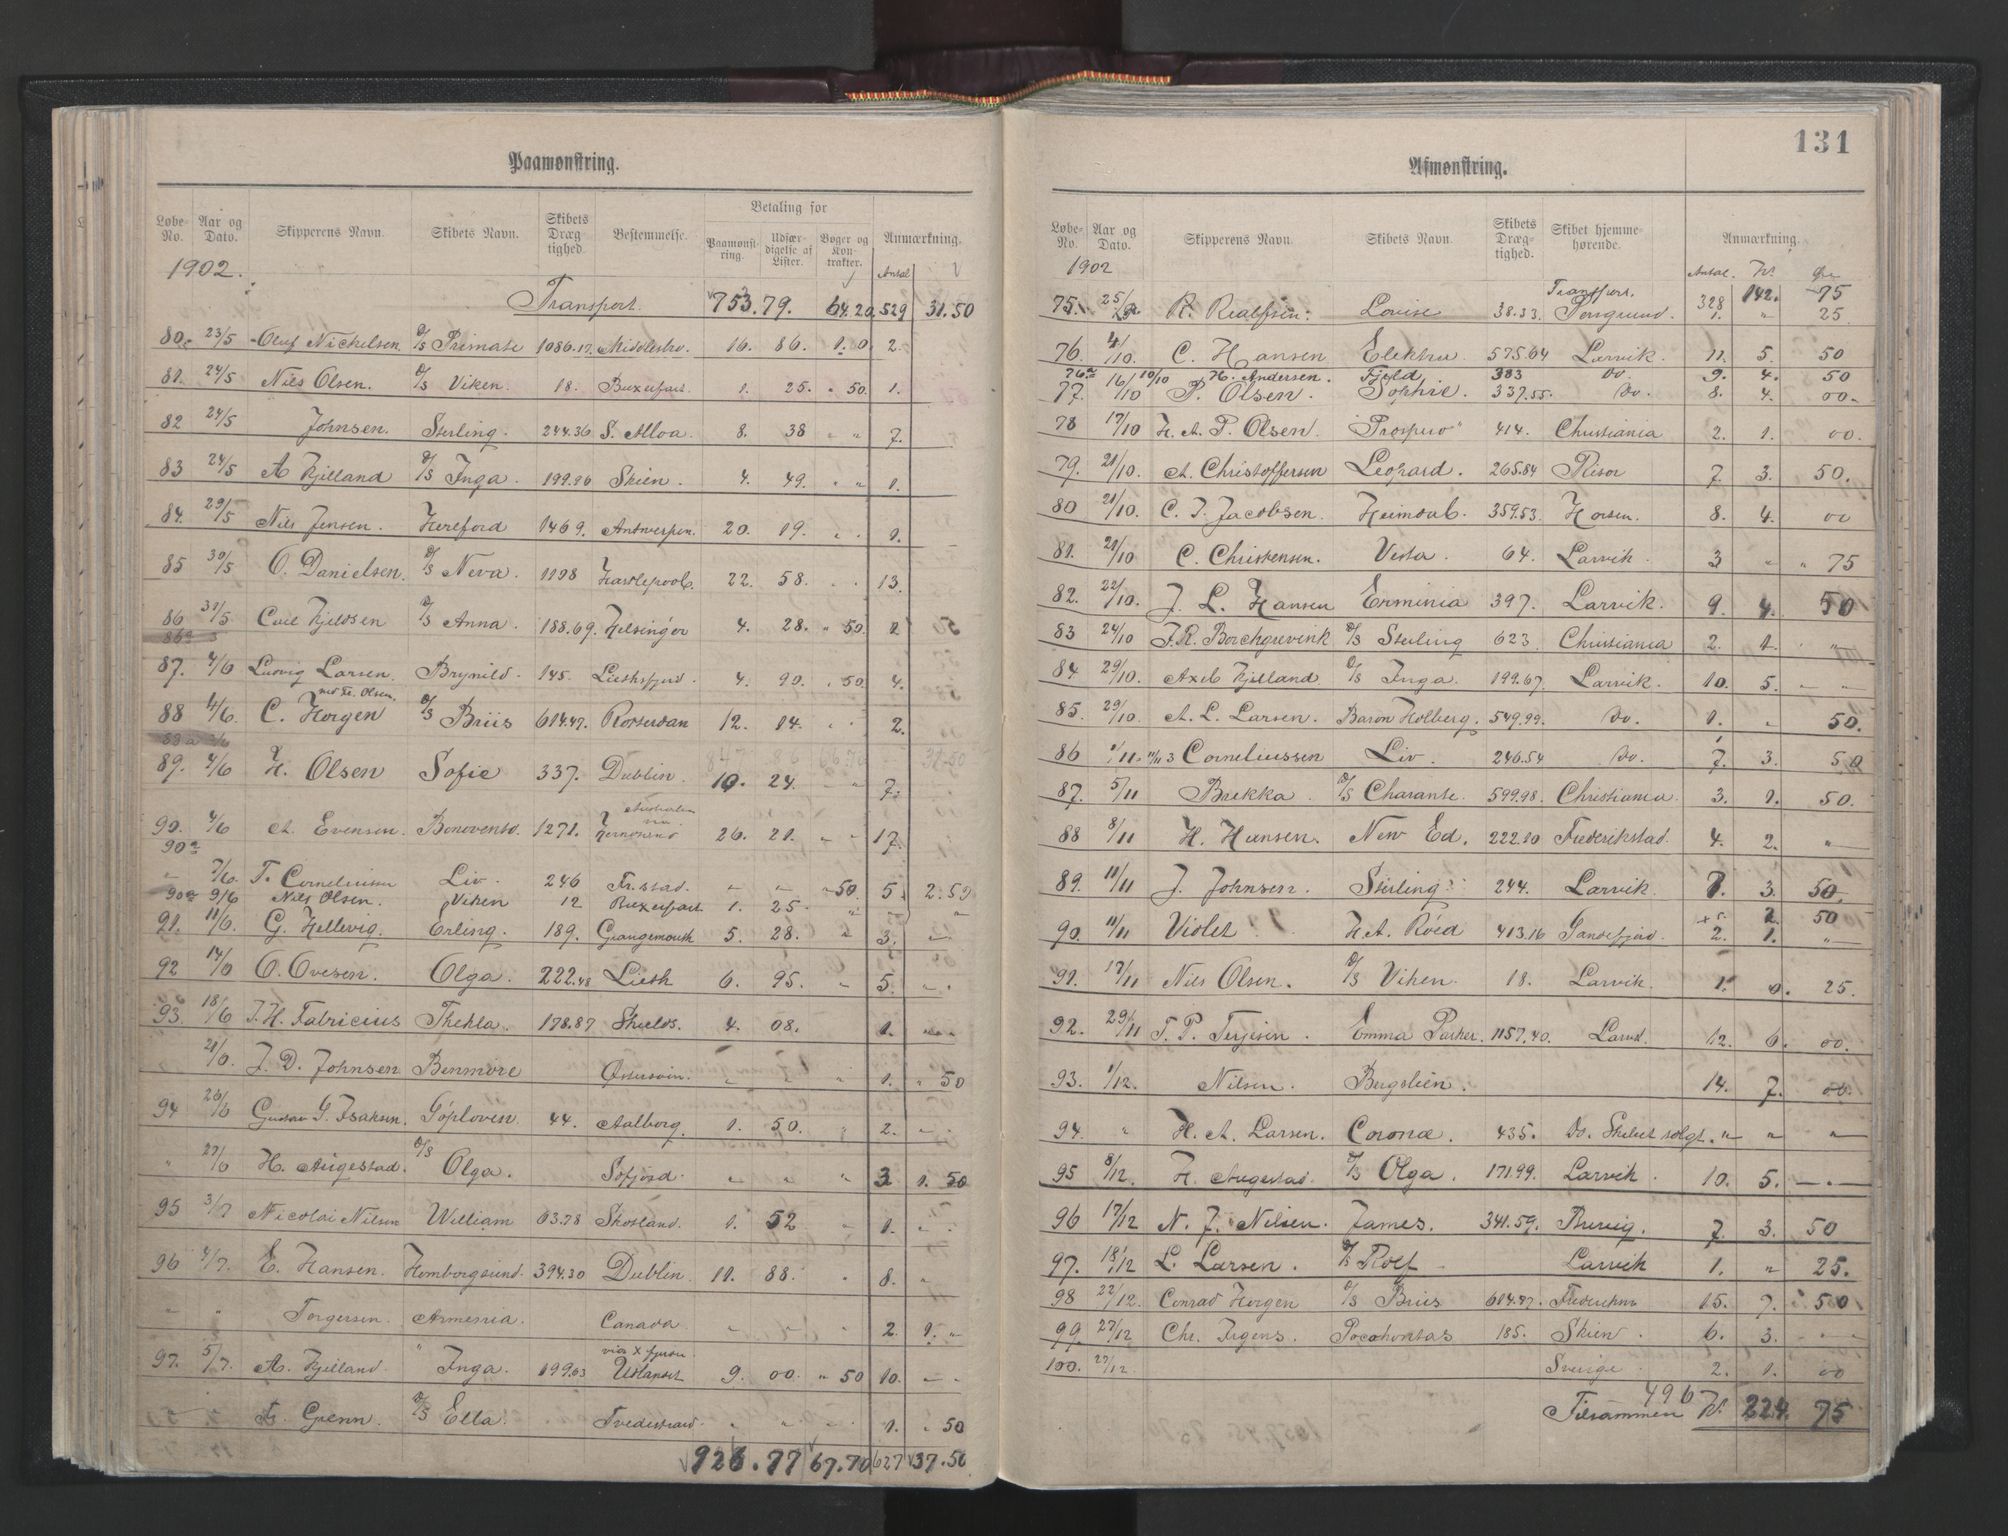 Paamønstring.
Løbe-No. Aar og Dato. Skipperens Navn. Skibets Navn. Skibets Dræg-tighed. Bestemmelse. Betaling for Paamønst-ring. Udfær-digelse af Lister. Bøger og Kon trakter. Anmærkning.
1902. Antal
Transport. 753.79. 64.20 529 31.50
80. 23/5 Oluf Nickelsen. D/S Primate 1086.17. Middlesbro. 16. 86. 1.0 2.
81. 24/5 Nils Olsen. D/S Viken. 18. Buxerfart. 1. 25. " 50. 1.
82 24/5 Johnsen. Sterling. 244.36 S. Alloa. 8. 38 " " 7.
83 24/5 A Kjelland D/S Inga. 199.96 Skien. 4. 49. " " 1.
84. 29/5 Nils Jensen. Hereford 1469. Antwerpen. 20. 19. " . 1.
85 30/5 O. Danielsen. D/S Neva. 1198 Hartlepool. 22. 58. . . 13.
86 31/5 Emil Kjeldsen D/S Anna. 188.69. Helsingør 4. 28. " 50. 2
87. 4/6 Ludvig Larsen. Brynild. 145. Liethsfjord. 4. 90. . 50. 4.
88 4/6. C. Horgen D/S Briis 614.47. Rotterdam 12. 14. . 2.
89. 4/6 H. Olsen Sofie 337. Dublin. 10. 24. " 7.
90. 4/6 A. Evensen. Bonovento. 1271. 26. 21. " " 17.
90a
" 7/6. T. Corneliussen Liv. 246 Fr.stad. " " " 50 5. 2.50
90a 9/6 Nils Olsen. Viken 12 Buxerfart. 1. 25. " "
91. 11/6. G. Hellevig. Erling. 189. Grangemouth 5. 28. " 3. "
92 14/6 O. Ovesen. Olga. 222.48 Lieth 6. 95. " 5. " .
93. 18/6 J. H. Fabricius Thekla. 178.87 Shields. 4. 08. 1. "
21/6. J. D. Johnsen Benmore Østersøin. " " " 1. " 50
94 26/6 Gustav G. Isaksen. Gjøploven. 44. Aalborg. 1. 50. " 2. " .
" 27/6 H. Augestad. D/S Olga. Søfjord. " " " 3 1. 50
95 3/7 Nicolai Nilsen William 63.78 Skotland. 1. 52 " 1. " .
96 4/7. E. Hansen. Homborgsund. 394.30 Dublin. 11. 88. " 8. "
" " Torgersen. Armenia. Canada. " " " 2. 1. "
97. 5/7. A. Kjelland. " Inga. 199.63 Udlandet 9. 00. " 50 10. " .
A. Grenn. D/S Ella. Tvedestrand. " " " 1. " 50
926.77 67.70 627 37.50
131
Afmønstring.
Løbe-No. Aar og Dato. Skipperens Navn. Skibets Navn. Skibets Dræg-tighed. Skibet hjemme-hørende. Anmærkning.
1902 Antal. Kr. Øre
Transport. 328 142. 75
75. 25/9 R. Realfsen. Louise 38.33. Porsgrund. 1. " 25
76. 4/10. C. Hansen Elektra. 575.64 Larvik. 11. 5. 50
76a 10/10 H. Andersen. Fjeld 383 Do. 9. 4. 50
77. 16/10 P. Olsen. Sophie. 337.55. Do. 8. 4. 00.
78 17/10 H. A. P. Olsen. Prospero" 414. Christiania 2. 1. 00.
79. 21/10. A. Christoffersen Leopard. 265.84 Risør 7. 3. 50.
80 21/10. C. J. Jacobsen. Heimdal. 359.53. Horsen. 8. 4. 00
81. 21/10 C. Christensen. Vesta. 64. Larvik. 3 " " 75
82. 22/10. J. L. Hansen Erminia 397. Larvik. 9. 4. 50
83 24/10 F. R. Borchgrevink D/S Sterling 623 Christiania 2. 1. "
84 29/10. Axel Kjelland. D/S Inga. 199.67. Larvik. 10. 5. " "
85. 29/10. A. L. Larsen. Baron Holberg. 549.99. Do. 1. " 50.
86 1/11. Corneliussen Liv. 246.54 Do. 7. 3. 50
87. 5/11 Brekka. D/S Charante. 599.98. Christiania. 3. 1. 50.
88 8/11 H. Hansen. New Ed. 222.80 Frederikstad. 4. 2. "
89. 11/11 J. Johnsen. Stirling. 244. Larvik. 7. 3. 50.
+5. 2 50
90. 11/11 Violet H. A. Röed 413.16 Sandefjord. 2. 1. "
91. 17/11 Nils Olsen. D/S Viken. 18. Larvik. 1. 0. 25.
92. 29/11 T. P. Terjesen. Emma Parker. 1157.40. Larvik. 12. 6. 00.
93. 1/12. Nilsen. Bergslien. 14. 7. 00.
94. " H. A. Larsen. Corona. 435. Do. Skibet solgt. " " "
95 8/12. H. Augestad. D/S Olga. 171.99. Larvik. 10. 5. " . "
96 17/12 N. J. Nilsen. James. 341.59. Brevig. 7. 3. 50
97. 18/12 L. Larsen. D/S Rolf Larvik 1. " 25.
98 22/12. Conrad Horgen D/S Briis 614.47. 15. 7. 50
99. 27/12 Chr. Irgens. Pocahontas 185. Skien. 6. 3. " "
100. 27/12. Sverige. 2. 1. 00
496
Tilsammen Kr. 224. 75